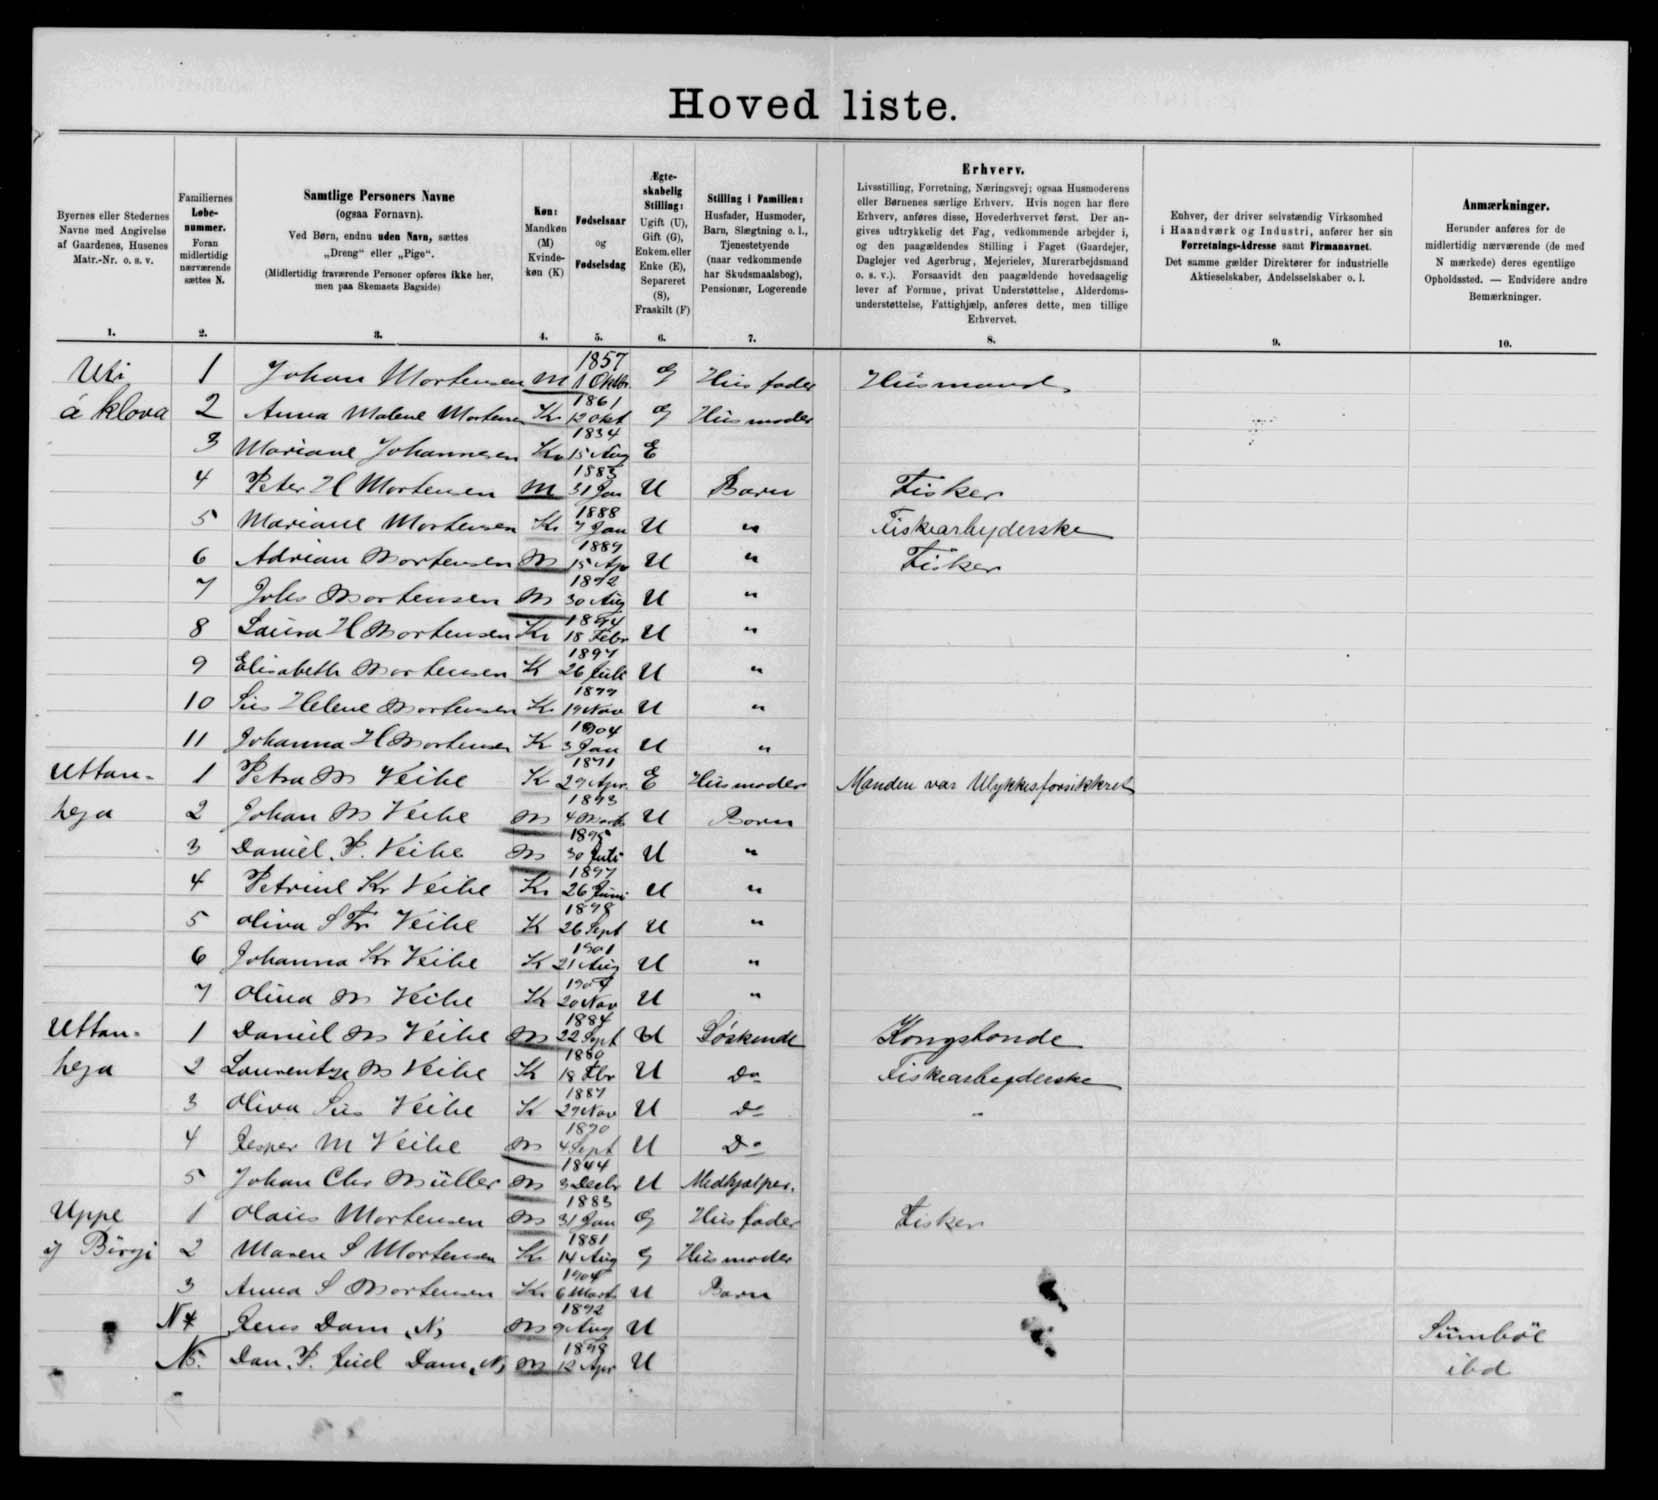 Hoved liste.
Byernes eller Stedernes Navne med Angivelse af Gaardenes, Husenes Matr.-Nr. o. s. v.
Familiernes Løbe-nummer. Foran midlertidig nærværende sættes N.
Samtlige Personers Navne (ogsaa Fornavn). Ved Børn, endnu uden Navn, sættes „Dreng“ eller „Pige“. (Midlertidig fraværende Personer opføres ikke her, men paa Skemaets Bagside)
Køn: Mandkøn (M) Kvinde-køn (K)
Fødselsaar og Fødselsdag
Ægte-skabelig Stilling: Ugift (U), Gift (G), Enkem. eller Enke (E), Separeret (S), Fraskilt (F)
Stilling i Familien: Husfader, Husmoder, Barn, Slægtning o. l., Tjenestetyende (naar vedkommende har Skudsmaalsbog), Pensionær, Logerende
Erhverv. Livsstilling, Forretning, Næringsvej; ogsaa Husmoderens eller Børnenes særlige Erhverv. Hvis nogen har flere Erhverv, anføres disse, Hovederhvervet først. Der an-gives udtrykkelig det Fag, vedkommende arbejder i, og den paagældendes Stilling i Faget (Gaardejer, Daglejer ved Agerbrug, Mejerielev, Murerarbejdsmand o. s. v.). Forsaavidt den paagældende hovedsagelig lever af Formue, privat Understøttelse, Alderdoms-understøttelse, Fattighjælp, anføres dette, men tillige Erhvervet.
Enhver, der driver selvstændig Virksomhed i Haandværk og Industri, anfører her sin Forretnings-Adresse samt Firmanavnet. Det samme gælder Direktører for industrielle Aktieselskaber, Andelsselskaber o. l.
Anmærkninger. Herunder anføres for de midlertidig nærværende (de med N mærkede) deres egentlige Opholdssted. — Endvidere andre Bemærkninger.
1. 2. 3. 4. 5. 6. 7. 8. 9. 10.
Uti 1 Johan Mortensen M 1857 1 Oktbr. G Husfader Husmand
á klova 2 Anna Malene Mortensen K 1861 12 Okt G Husmoder
3 Mariane Johannesen K 1834 15 Aug E
4 Peter H Mortensen M 1885 31 Jan U Barn Fisker
5 Mariane Mortensen K 1888 7 Jan U " Fiskearbyderske
6 Adrian Mortensen M 1889 15 Apr U " Fisker
7 Johs Mortensen M 1892 30 Aug U "
8 Laura H Mortensen K 1894 18 Febr U "
9 Elisabeth Mortensen K 1897 26 Juli U "
10 Sus Helene Mortensen K 1899 19 Nov U "
11 Johanna H Mortensen K 1904 3 Jan U "
Uttan- 1 Petra M Veihe K 1871 29 Apr. E Husmoder Manden var Ulykkesforsikkret
heja 2 Johan M Veihe M 1893 4 Marts U Barn
3 Daniel. P. Veihe M 1895 30 Juli U "
4 Petrine Kr Veihe K 1897 26 Juni U "
5 Oliva S Fr Veihe K 1898 26 Sept U "
6 Johanna Kr Veihe K 1901 21 Aug U "
7 Olina M Veihe K 20 Nov U "
Uttan- 1 Daniel M Veihe M 1884 22 Sept U Søskende Kongsbonde
heja 2 Laurentze M Veihe K 1880 18 Fbr U Do Fiskearbejderske
3 Oliva Sus Veihe K 1887 29 Nov U Do "
4 Jesper M Veihe M 1890 4 Sept U Do
5 Johan Chr Müller M 1844 3 Decbr U Medhjælper.
Uppe 1 Olaus Mortensen M 1883 31 Jan G Husfader Fisker
ij Búrgi 2 Maren S Mortensen K 1881 14 Aug G Husmoder
3 Anna S Mortensen K 1904 6 Marts U Barn
N 4 Jens Dam, N, M 1892 9 Aug U Sumböe
N 5. Dan. P. Juel Dam, N, M 1898 12 Apr U ibd